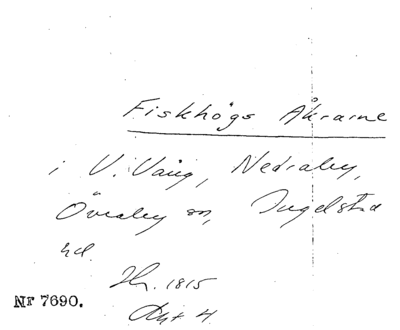 Fiskhögs Åkrarne
i V. Vång, Nedraby,
Övraby sn, Ingelstad
hd.
Hr. 1815
Akt 4
Nr 7690.